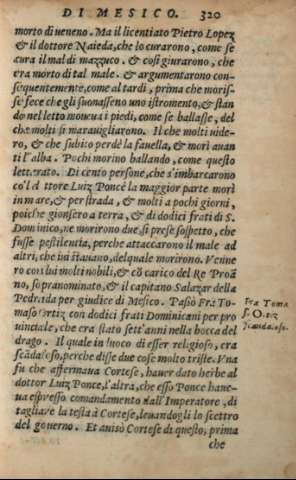 DI MESICO. 320
morto di ueneno. Ma il licentiato Pietro Lopez
& il dottore Naieda, che lo curarono, come se
cura il mal di mazzuco. & così giurarono, che
era morto di tal male. & argumentarono con-
sequentemente, come al tardi, prima che moris-
se fece che gli suonasseno uno istromento, & stan
do nel letto moueua i piedi, come se ballasse, del
che molti si marauigliarono. Il che molti uide-
ro, & che subito perdè la fauella, & morì auan
ti l'alba. Pochi morino ballando, come questo
letterato. Di cento persone, che s'imbarcarono
co'l dottore Luiz Ponce la maggior parte morì
in mare, & per strada, & molti a pochi giorni,
poiche gionsero a terra, & di dodici frati di S.
Dominico, ne morirono due si prese sospetto, che
fusse pestilentia, perche attaccarono il male ad
altri, che iui stauano, del quale morirono. Venne
ro con lui molti nobili, & cõ carico del Re Proã
no, sopranominato, & il capitano Salazar della
Pedrada per giudice di Mesico. Passò Frà To-
maso Ortiz con dodici frati Dominicani per pro
uinciale, che era stato sett'anni nella bocca del
drago. Il quale in luoco di esser religioso, era
scãdaloso, perche disse due cose molto triste. Vna
fu che affermaua Cortese, hauer dato herbe al
dottor Luiz Ponce, l'altra, che esso Ponce haue-
ua espresso comandamento dall'Imperatore, di
tagliare la testa à Cortese, leuandogli lo scettro
del gouerno. Et auisò Cortese di questo, prima
che
Fra Toma
so Ortiz
scandaloso.